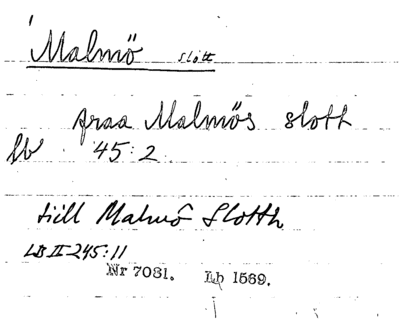 Malmö slott
fraa Malmös slott
Lb 45:2
till Malmö Slotth
LB II 245:11
Nr 7031. Lh 1569.